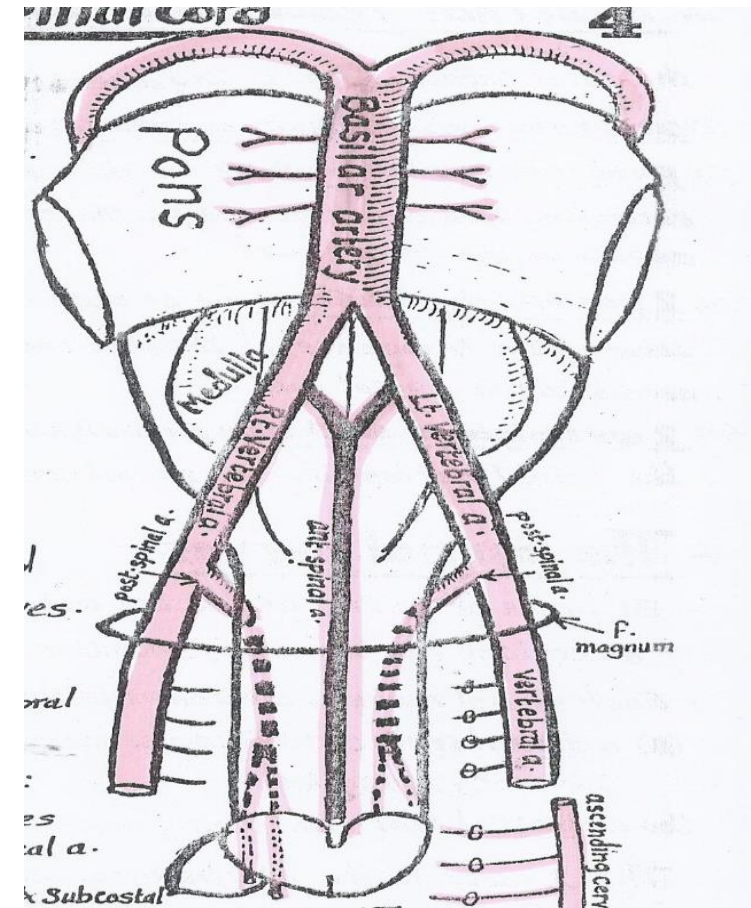 4
Basilar artery
Pons
Medulla
Rt. Vertebral a.
Lt. Vertebral a.
post-spinal a.
ant. spinal a.
post-spinal a.
F.
magnum
vertebral a.
ascending cerv
al a.
x Subcostal